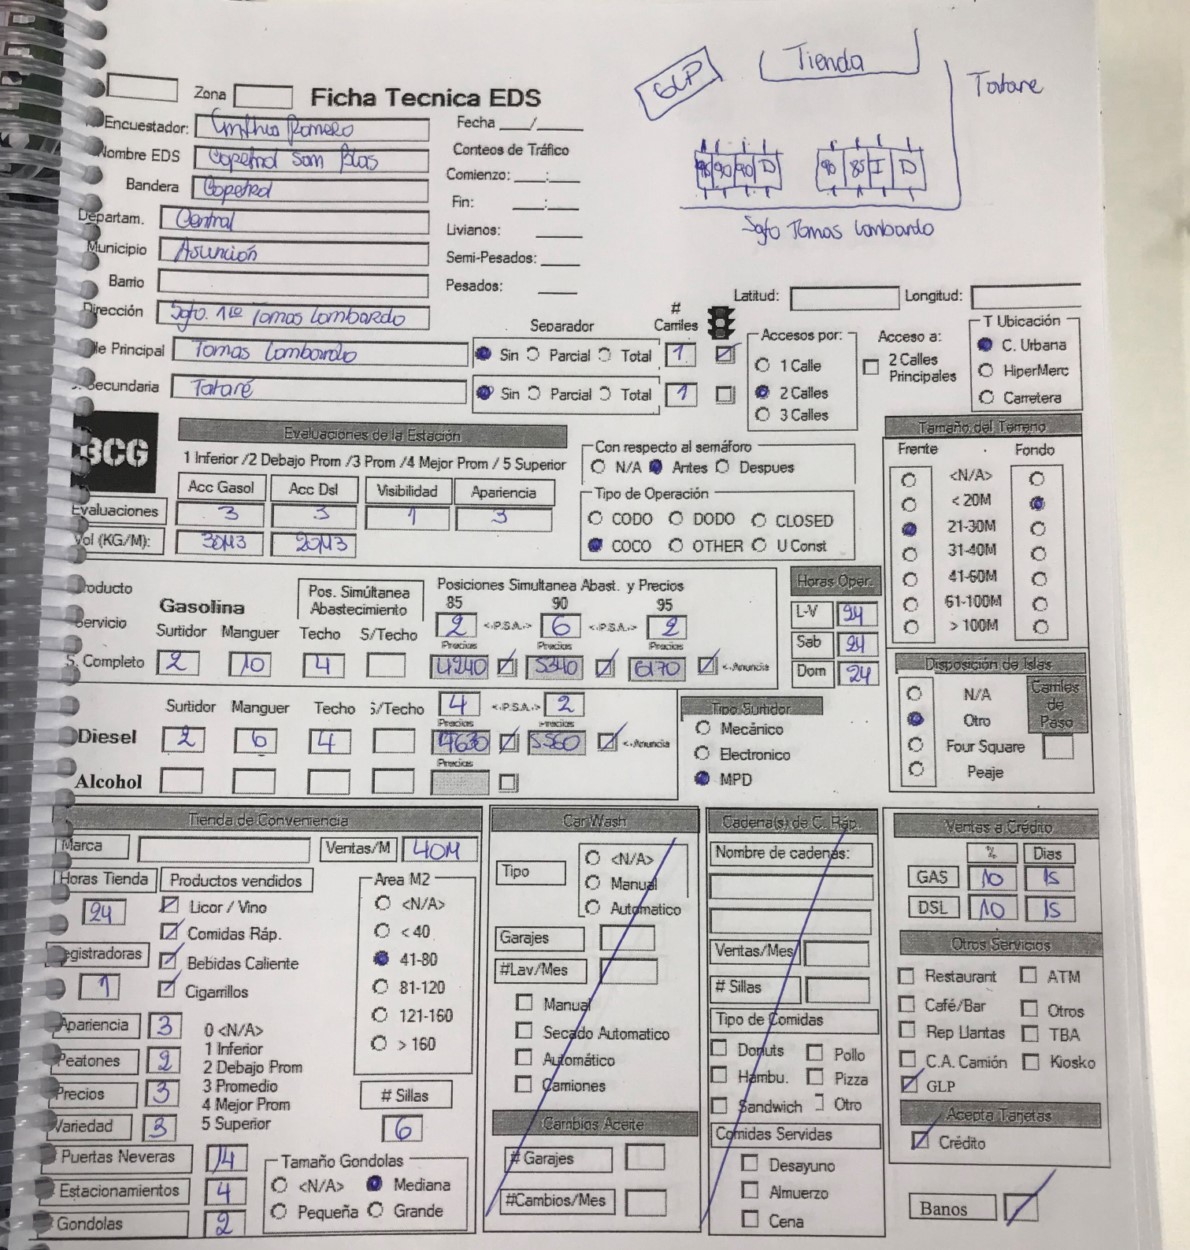 Tienda
GLP
Tatare
Zona
Ficha Tecnica EDS
Encuestador: Cynthia Romero
Fecha ___/___
Nombre EDS Copetrol San Blas
Conteos de Tráfico
Bandera Copetrol
Comienzo: ___:___
Departam. Central
Fin: ___:___
Livianos: ___
Sgto Tomas Lombardo
Municipio Asunción
Semi-Pesados: ___
Barrio
Pesados: ___
Latitud: Longitud:
Dirección Sgto. 1ro Tomas Lombardo
Separador # Carriles
Accesos por: Acceso a: T Ubicación
Principal Tomas Lombardo Sin Parcial Total 1
1 Calle 2 Calles Principales C. Urbana
HiperMerc
Secundaria Tataré Sin Parcial Total 1
2 Calles Carretera
3 Calles
BCG
Evaluaciones de la Estación
Tamaño del Terreno
1 Inferior /2 Debajo Prom /3 Prom /4 Mejor Prom / 5 Superior
Con respecto al semáforo
Frente Fondo
N/A Antes Despues
<N/A>
Acc Gasol Acc Dsl Visibilidad Apariencia
Tipo de Operación
< 20M
Evaluaciones 3 3 1 3
CODO DODO CLOSED
21-30M
Vol (KG/M): 30M3 20M3
COCO OTHER U Const
31-40M
41-60M
61-100M
> 100M
Producto Pos. Simúltanea Abastecimiento Posiciones Simultanea Abast. y Precios
Horas Oper.
Gasolina 85 90 95
L-V 24
Servicio 2 <.P.S.A.> 6 <.P.S.A.> 2
Sab 24
Surtidor Manguer Techo S/Techo Precios Precios Precios
S. Completo 2 10 4 4240 5340 6170 <-Anuncia
Dom 24
Disposición de Islas
N/A Carriles de Paso
Otro
Four Square
Peaje
Surtidor Manguer Techo S/Techo 4 <.P.S.A.> 2
Tipo Surtidor
Precios Precios
Mecánico
Diesel 2 6 4 4630 5560 <-Anuncia
Electronico
Precios
MPD
Alcohol
Tienda de Conveniencia
Marca Ventas/M 40M
Horas Tienda Productos vendidos Area M2
24 Licor / Vino <N/A>
Comidas Ráp. < 40
Registradoras Bebidas Caliente 41-80
1 Cigarrillos 81-120
121-160
> 160
Apariencia 3 0 <N/A>
1 Inferior
Peatones 2 2 Debajo Prom
Precios 3 3 Promedio # Sillas
4 Mejor Prom
Variedad 3 5 Superior 6
Puertas Neveras 14 Tamaño Gondolas
Estacionamientos 4 <N/A> Mediana
Gondolas 2 Pequeña Grande
Car Wash
Tipo <N/A>
Manual
Automatico
Garajes
#Lav/Mes
Manual
Secado Automatico
Automático
Camiones
Cambios Aceite
# Garajes
#Cambios/Mes
Cadena(s) de C. Ráp.
Nombre de cadenas:
Ventas/Mes
# Sillas
Tipo de Comidas
Donuts Pollo
Hambu. Pizza
Sandwich Otro
Comidas Servidas
Desayuno
Almuerzo
Cena
Ventas a Crédito
% Dias
GAS 10 15
DSL 10 15
Otros Servicios
Restaurant ATM
Café/Bar Otros
Rep Llantas TBA
C.A. Camión Kiosko
GLP
Acepta Tarjetas
Crédito
Banos